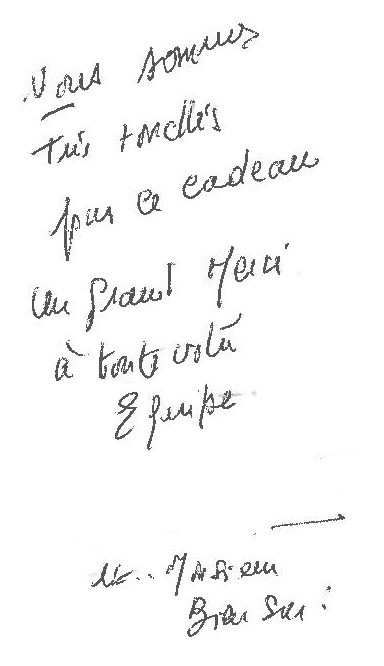 Nous sommes
très touchés
par ce cadeau
Un grand Merci
à toute votre
Equipe
et.. Monsieur
Bien sur: